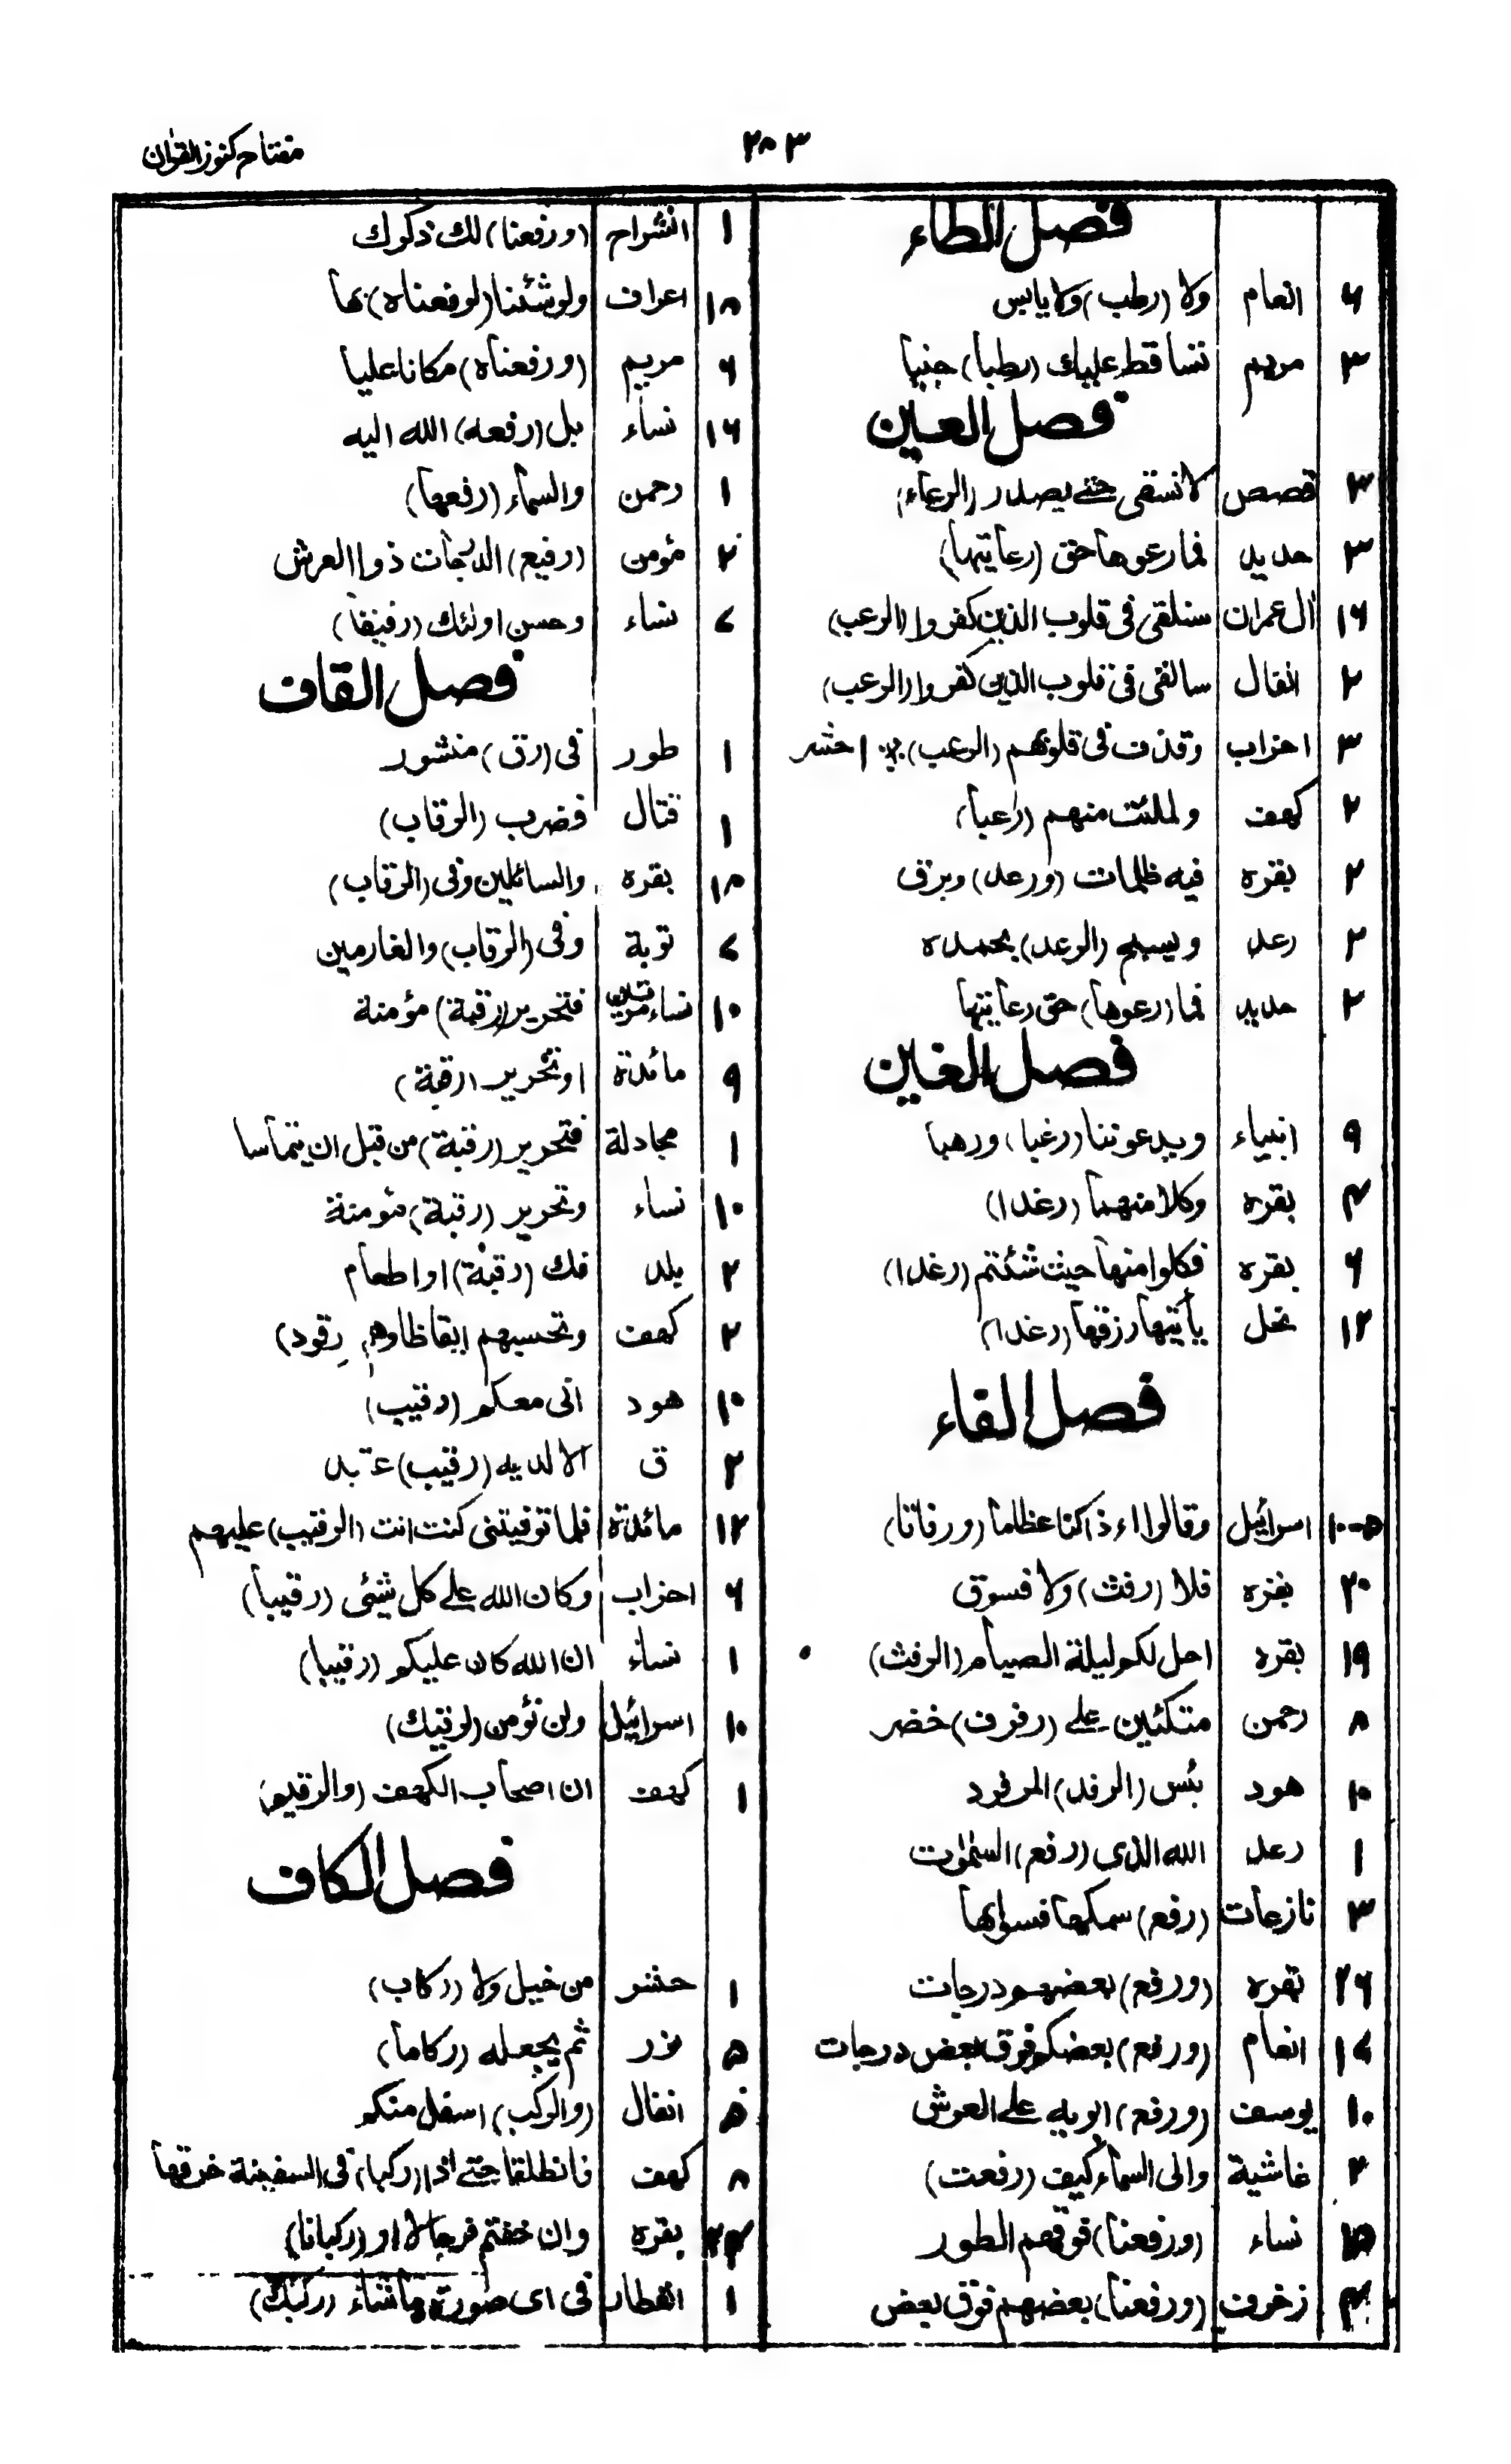 مفتاح کنوز القران
۲۰۳
فصل الطاء
۶ انعام ولا (رطب) ولا یابس
۳ مریم تساقط علیك (رطبا) جنیا
فصل العین
۳ قصص لا نسقی حتے یصدر (الرعاء)
۳ حدید فما رعوها حق (رعایتها)
۱۶ اٰل عمران سنلقی فی قلوب الذین کفروا (الرعب)
۲ انفال سالقی فی قلوب الذین کفروا (الرعب)
۳ احزاب وقذف فی قلوبهم (الرعب) ۱ حشر
۲ کهف ولملئت منهم (رعبا)
۲ بقره فیه ظلمات (ورعد) وبرق
۲ رعد ویسبح (الرعد) بحمده
۲ حدید فما (رعوها) حق رعایتها
فصل الغین
۹ انبیاء ویدعوننا (رغبا) ورهبا
۴ بقره وکلا منهما (رغدا)
۶ بقره فکلوا منها حیث شئتم (رغدا)
۱۲ نحل یأتیها رزقها (رغدا)
فصل الفاء
۱۰-۵ اسرائیل وقالوا اءذا کنا عظاما (ورفاتا)
۲۰ بقره فلا (رفث) ولا فسوق
۱۹ بقره احل لکم لیلة الصیام (الرفث)
۸ رحمن متکئین علے (رفرف) خضر
۱۰ هود بئس (الرفد) المرفود
۱ رعد الله الذی (رفع) السمٰوٰت
۳ نازعات (رفع) سمکها فسواها
۲۶ بقره (ورفع) بعضهم درجات
۱۷ انعام (ورفع) بعضکم فوق بعض درجات
۱۰ یوسف (ورفع) ابویه علے العرش
۲ غاشیة والی السماء کیف (رفعت)
نساء (ورفعنا) فوقهم الطور
زخرف (ورفعنا) بعضهم فوق بعض
۱ انشراح (ورفعنا) لك ذکرك
۱۸ اعراف ولو شئنا (لرفعناه) بها
۶ مریم (ورفعناه) مکانا علیا
۱۶ نساء بل (رفعه) الله الیه
۱ رحمن والسماء (رفعها)
۲ مؤمن (رفیع) الدرجات ذوا العرش
۷ نساء وحسن اولئك (رفیقا)
فصل القاف
۱ طور فی (رق) منشور
۱ قتال فضرب (الرقاب)
۱۸ بقره والسائلین وفی (الرقاب)
۷ توبة وفی (الرقاب) والغارمین
۱۰ نساء فتحریر (رقبة) مؤمنة
۹ مائدة او تحریر (رقبة)
۱ مجادلة فتحریر (رقبة) من قبل ان یتماسا
۱۰ نساء وتحریر (رقبة) مؤمنة
۲ بلد فك (رقبة) او اطعام
۲ کهف وتحسبهم ایقاظا وهم رقود)
۱۰ هود انی معکم (رقیب)
۲ ق الا لدیه (رقیب) عتید
۱۲ مائدة فلما توفیتنی کنت انت (الرقیب) علیهم
۶ احزاب وکان الله علے کل شیئی (رقیبا)
۱ نساء ان الله کان علیکم (رقیبا)
۱۰ اسرائیل ولن نؤمن (لرقیك)
۱ کهف ان اصحاب الکهف (والرقیم)
فصل الکاف
۱ حشر من خیل ولا (رکاب)
۵ نور ثم یجعله (رکاما)
۵ انفال (والرکب) اسفل منکم
۸ کهف فانطلقا حتے اذا (رکبا) فی السفینة خرقها
بقره وان خفتم فرجالا او (رکبانا)
۱ انفطار فی ای صورة ما شاء (رکبك)